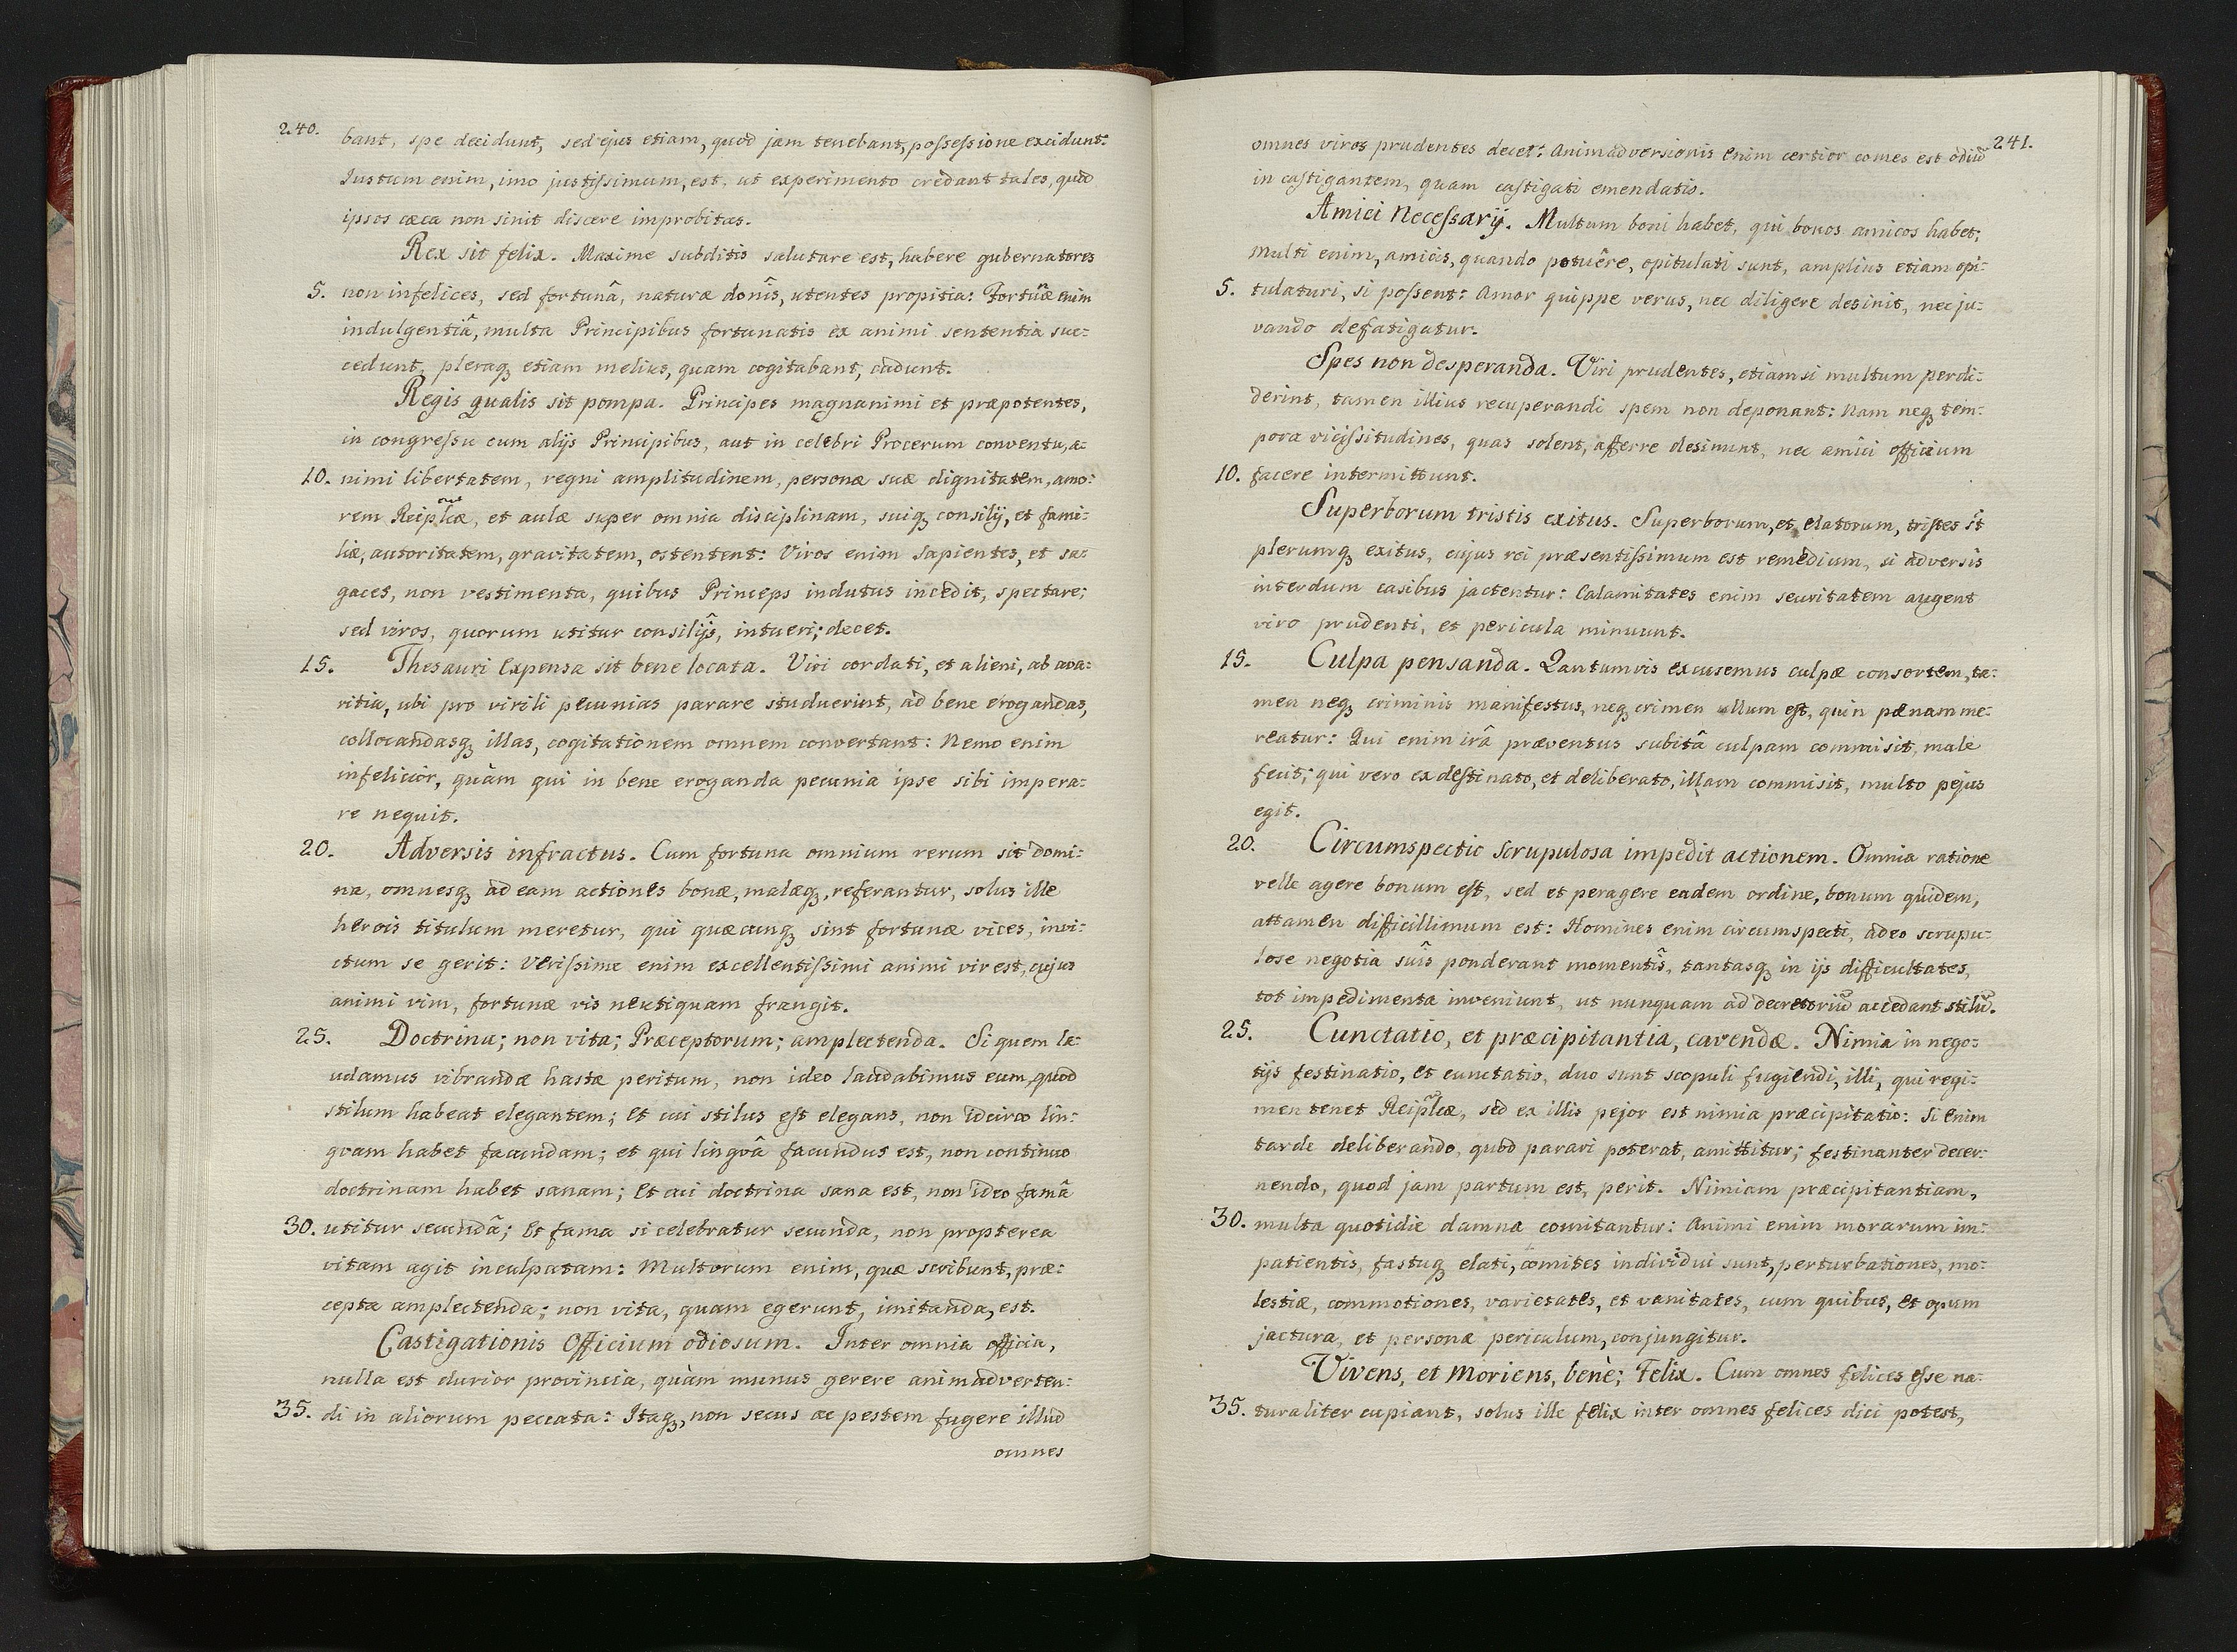 240.
bant, spe decidunt, sed ejus etiam, quod jam tenebant, possessione excidunt:
Iustum enim, imo justissimum, est, ut experimento credant tales, quod
ipsos cæca non sinit discere improbitas.
Rex sit felix. Maxime subditis salutare est, habere gubernatores
5. non infelices, sed fortunâ, naturæ donîs, utentes propitia: Fortunæ enim
indulgentiâ, multa Principibus fortunatis ex animi sententia suc:
cedunt, pleraq₃ etiam melius, quam cogitabant, cadunt.
Regis qualis sit pompa. Principes magnanimi et præpotentes,
in congressu cum alijs Principibus, aut in celebri Procerum conventu, a:
10. nimi libertatem, regni amplitudinem, personæ suæ dignitatem, amo:
rem Reiplicæ, et aulæ super omnia disciplinam, suiq₃ consilij, et fami:
liæ, autoritatem, gravitatem, ostentent: Viros enim sapientes, et sa:
gaces, non vestimenta, quibus Princeps indutus incedit, spectare;
sed viros, quorum utitur consilijs, intueri; decet.
15. Thesauri Expensa sit bene locata. Viri cordati, et alieni, ab ava:
ritia, ubi pro virili pecunias parare studuerint, ad bene erogandas,
collocandasq₃ illas, cogitationem omnem convertant: Nemo enim
infelicior, quàm qui in bene eroganda pecunia ipse sibi impera:
re nequit.
20. Adversis infractus. Cum fortuna omnium rerum sit domi:
na, omnesq₃ ad eam actiones bonæ, malæq₃, referantur, solus ille
herois titulum meretur, qui quæcunq₃ sint fortunæ vices, invi:
ctum se gerit: Verissime enim excellentissimi animi vir est, cujus
animi vim, fortunæ vis neutiquam frangit.
25. Doctrina; non vita; Præceptorum; amplectenda. Si quem la:
udamus vibrandæ hastæ peritum, non ideo laudabimus eum, quod
stilum habeat elegantem; Et cui stilus est elegans, non idcirco lin:
gvam habet facundam; et qui lingvâ facundus est, non continuo
doctrinam habet sanam; Et cui doctrina sana est, non ideo famâ
30. utitur secundâ; Et fama si celebratur secunda, non propterea
vitam agit inculpatam: Multorum enim, quæ scribunt, præ:
cepta amplectenda; non vita, quam egerunt, imitanda, est.
Castigationis Officium odiosum. Inter omnia officia,
nulla est durior provincia, quàm munus gerere animadverten:
35. di in aliorum peccata: Itaq₃, non secus ac pestem fugere illud
omnes
241.
omnes viros prudentes decet: Animadversionis enim certior comes est odiu͂
in castigantem, quam castigati emendatio.
Amici Necessarij. Multum boni habet, qui bonos amicos habet;
Multi enim, amicis, quando potuêre, opitulati sunt, amplius etiam opi:
5. tulaturi, si possent: Amor quippe verus, nec diligere desinit, nec ju:
vando defatigatur.
Spes non desperanda. Viri prudentes, etiamsi multum perdi:
derint, tamen illius recuperandi spem non deponant: Nam neq₃ tem:
pora vicissitudines, quas solent, afferre desinunt, nec amici officium
10. facere intermittunt.
Superborum tristis exitus. Superborum, et elatorum, tristes st̂
plerumq₃ exitus, cujus rei præsentissimum est remedium, si adversis
interdum casibus jactentur: Calamitates enim securitatem augent
viro prudenti, et pericula minuunt.
15. Culpa pensanda. Qantumvis excusemus culpæ consortem, ta:
men neq₃ criminis manifestus, neq₃ crimen ullum est, quin pœnam me:
reatur: Qui enim irâ præventus subitâ culpam commisit, male
fecit; qui vero ex destinato, et deliberato, illam commisit, multo pejus
egit.
20. Circumspectio scrupulosa impedit actionem. Omnia ratione
velle agere bonum est, sed et peragere eadem ordine, bonum quidem,
attamen difficillimum est: Homines enim circumspecti, adeo scrupu:
lose negotia suîs ponderant momentîs, tantasq₃ in ijs difficultates,
tot impedimenta inveniunt, ut nunquam ad decretoriu͂ accedant stilu͂.
25. Cunctatio, et præcipitantia, cavendæ. Nimia in nego:
tijs festinatio, et cunctatio, duo sunt scopuli fugiendi, illi, qui regi:
men tenet Reiplicæ, sed ex illis pejor est nimia præcipitatio: Si enim
tarde deliberando, quod parari poterat, amittitur; festinanter decer:
nendo, quod jam partum est, perit. Nimiam præcipitantiam,
30. multa quotidie damna comitantur: Animi enim morarum im:
patientis, fastuq₃ elati, comites individui sunt, perturbationes, mo:
lestiæ, commotiones, varietates, et vanitates, cum quibus, et opum
jactura, et personæ periculum, conjungitur.
Vivens, et Moriens, benè; Felix. Cum omnes felices esse na:
35. turaliter cupiant, solus ille felix inter omnes felices dici potest,